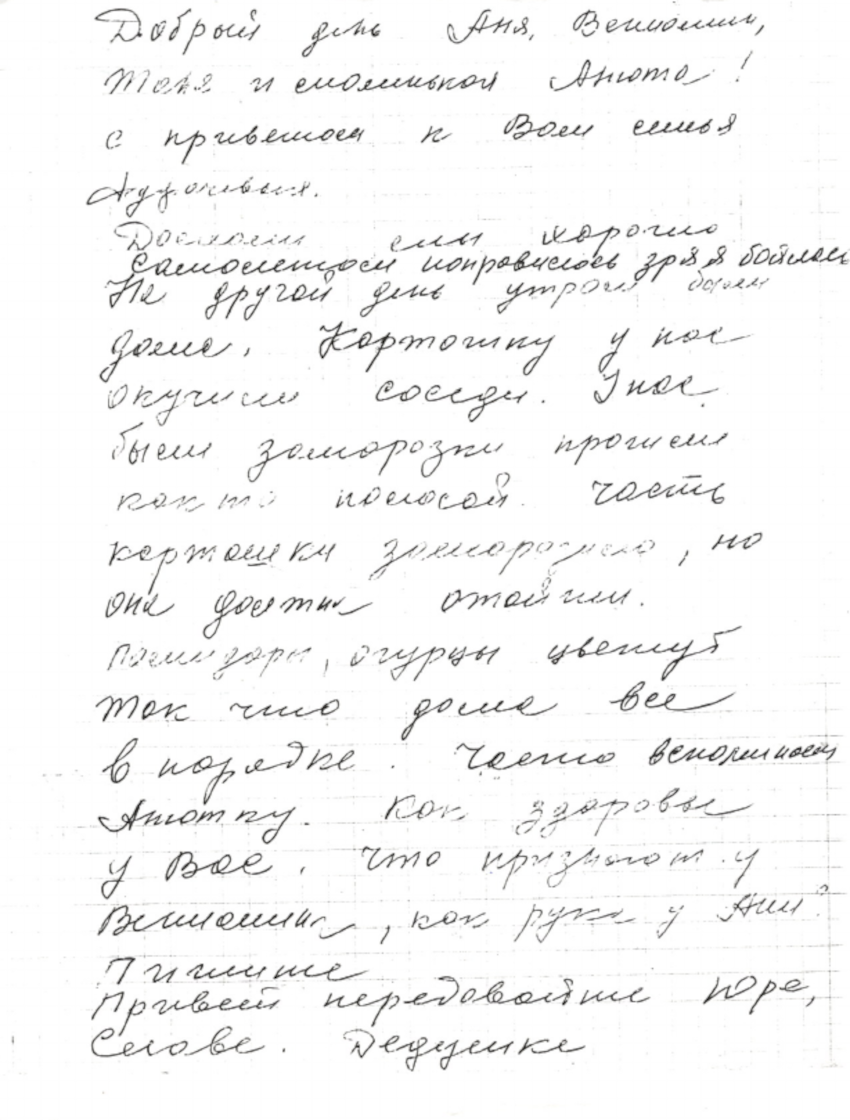 Добрый день Аня, Вениамин,
Таня и маминькая Анюта!
с приветом к Вам семья
Доехали мы хорошо
Самолетом понравилось зря я боялась
На другой день утром были
дома. Картошку у нас
окучили соседи. У нас
были заморозки прошли
как то полосой. Часть
картошки заморозило, но
она должна отойти.
Помидоры, огурцы цветут
так что дома все
в порядке. Часто вспоминаем
Анютку. Как здоровье
у Вас. Что признают у
Вениамина, как рука у Ани?
Пишите
Привет передавайте Юре,
Славе. Дедушке